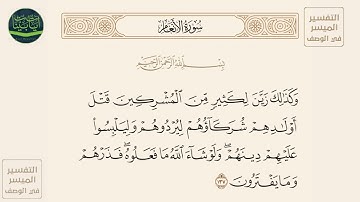 سُورَةُ الأَنْعَام
التفسير
الميسر
في الوصف
بِسْمِ اللَّهِ الرَّحْمَٰنِ الرَّحِيمِ
وَكَذَٰلِكَ زَيَّنَ لِكَثِيرٍ مِّنَ الْمُشْرِكِينَ قَتْلَ
أَوْلَٰدِهِمْ شُرَكَآؤُهُمْ لِيُرْدُوهُمْ وَلِيَلْبِسُوا۟
عَلَيْهِمْ دِينَهُمْ ۖ وَلَوْ شَآءَ اللَّهُ مَا فَعَلُوهُ ۖ فَذَرْهُمْ
وَمَا يَفْتَرُونَ ١٣٧
التفسير
الميسر
في الوصف